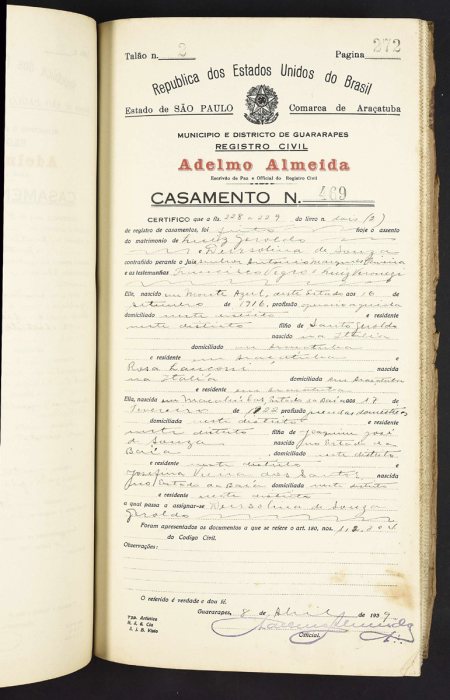 Talão n. 2 Pagina 272
Republica dos Estados Unidos do Brasil
Estado de SÃO PAULO Comarca de Araçatuba
MUNICIPIO E DISTRICTO DE GUARARAPES
REGISTRO CIVIL
Adelmo Almeida
Escrivão de Paz e Official do Registro Civil
CASAMENTO N. 469
CERTIFICO que a fls. 228 a 229 do livro n. dois (2)
de registro de casamentos, foi feito hoje o assento
de matrimonio de Luiz Geroldo
Deusolina de Souza
contrahido perante o Juiz Antonio Marques
e as testemunhas Francisco
Elle, nascido em Monte Azul, deste Estado aos 16 de
setembro de 1916, profissão
domiciliado neste districto e residente
neste districto filho de Santo Geroldo
nascido na Italia
domiciliado em Araçatuba
e residente em Araçatuba e
Rosa nascida
na Italia domiciliada em Araçatuba
e residente em Araçatuba
Ella, nascida em Estado da Baía aos 28 de
Fevereiro de 1922 profissão prendas domesticas
domiciliada neste districto e residente
neste districto filha de Joaquim José
de Souza nascido no Estado da
Baía domiciliado neste districto
e residente neste districto e
Josefina Vieira dos Santos nascida
no Estado da Baía domiciliada neste districto
e residente neste districto
a qual passa a assignar-se Deusolina de Souza
Geroldo
Foram apresentados os documentos a que se refere o art. 180, nos. 1, 2, 3 e 4
do Codigo Civil.
Observações:
O referido é verdade e dou fé.
Guararapes, 8 de Abril de 1939
Typ. Artistica
Official.